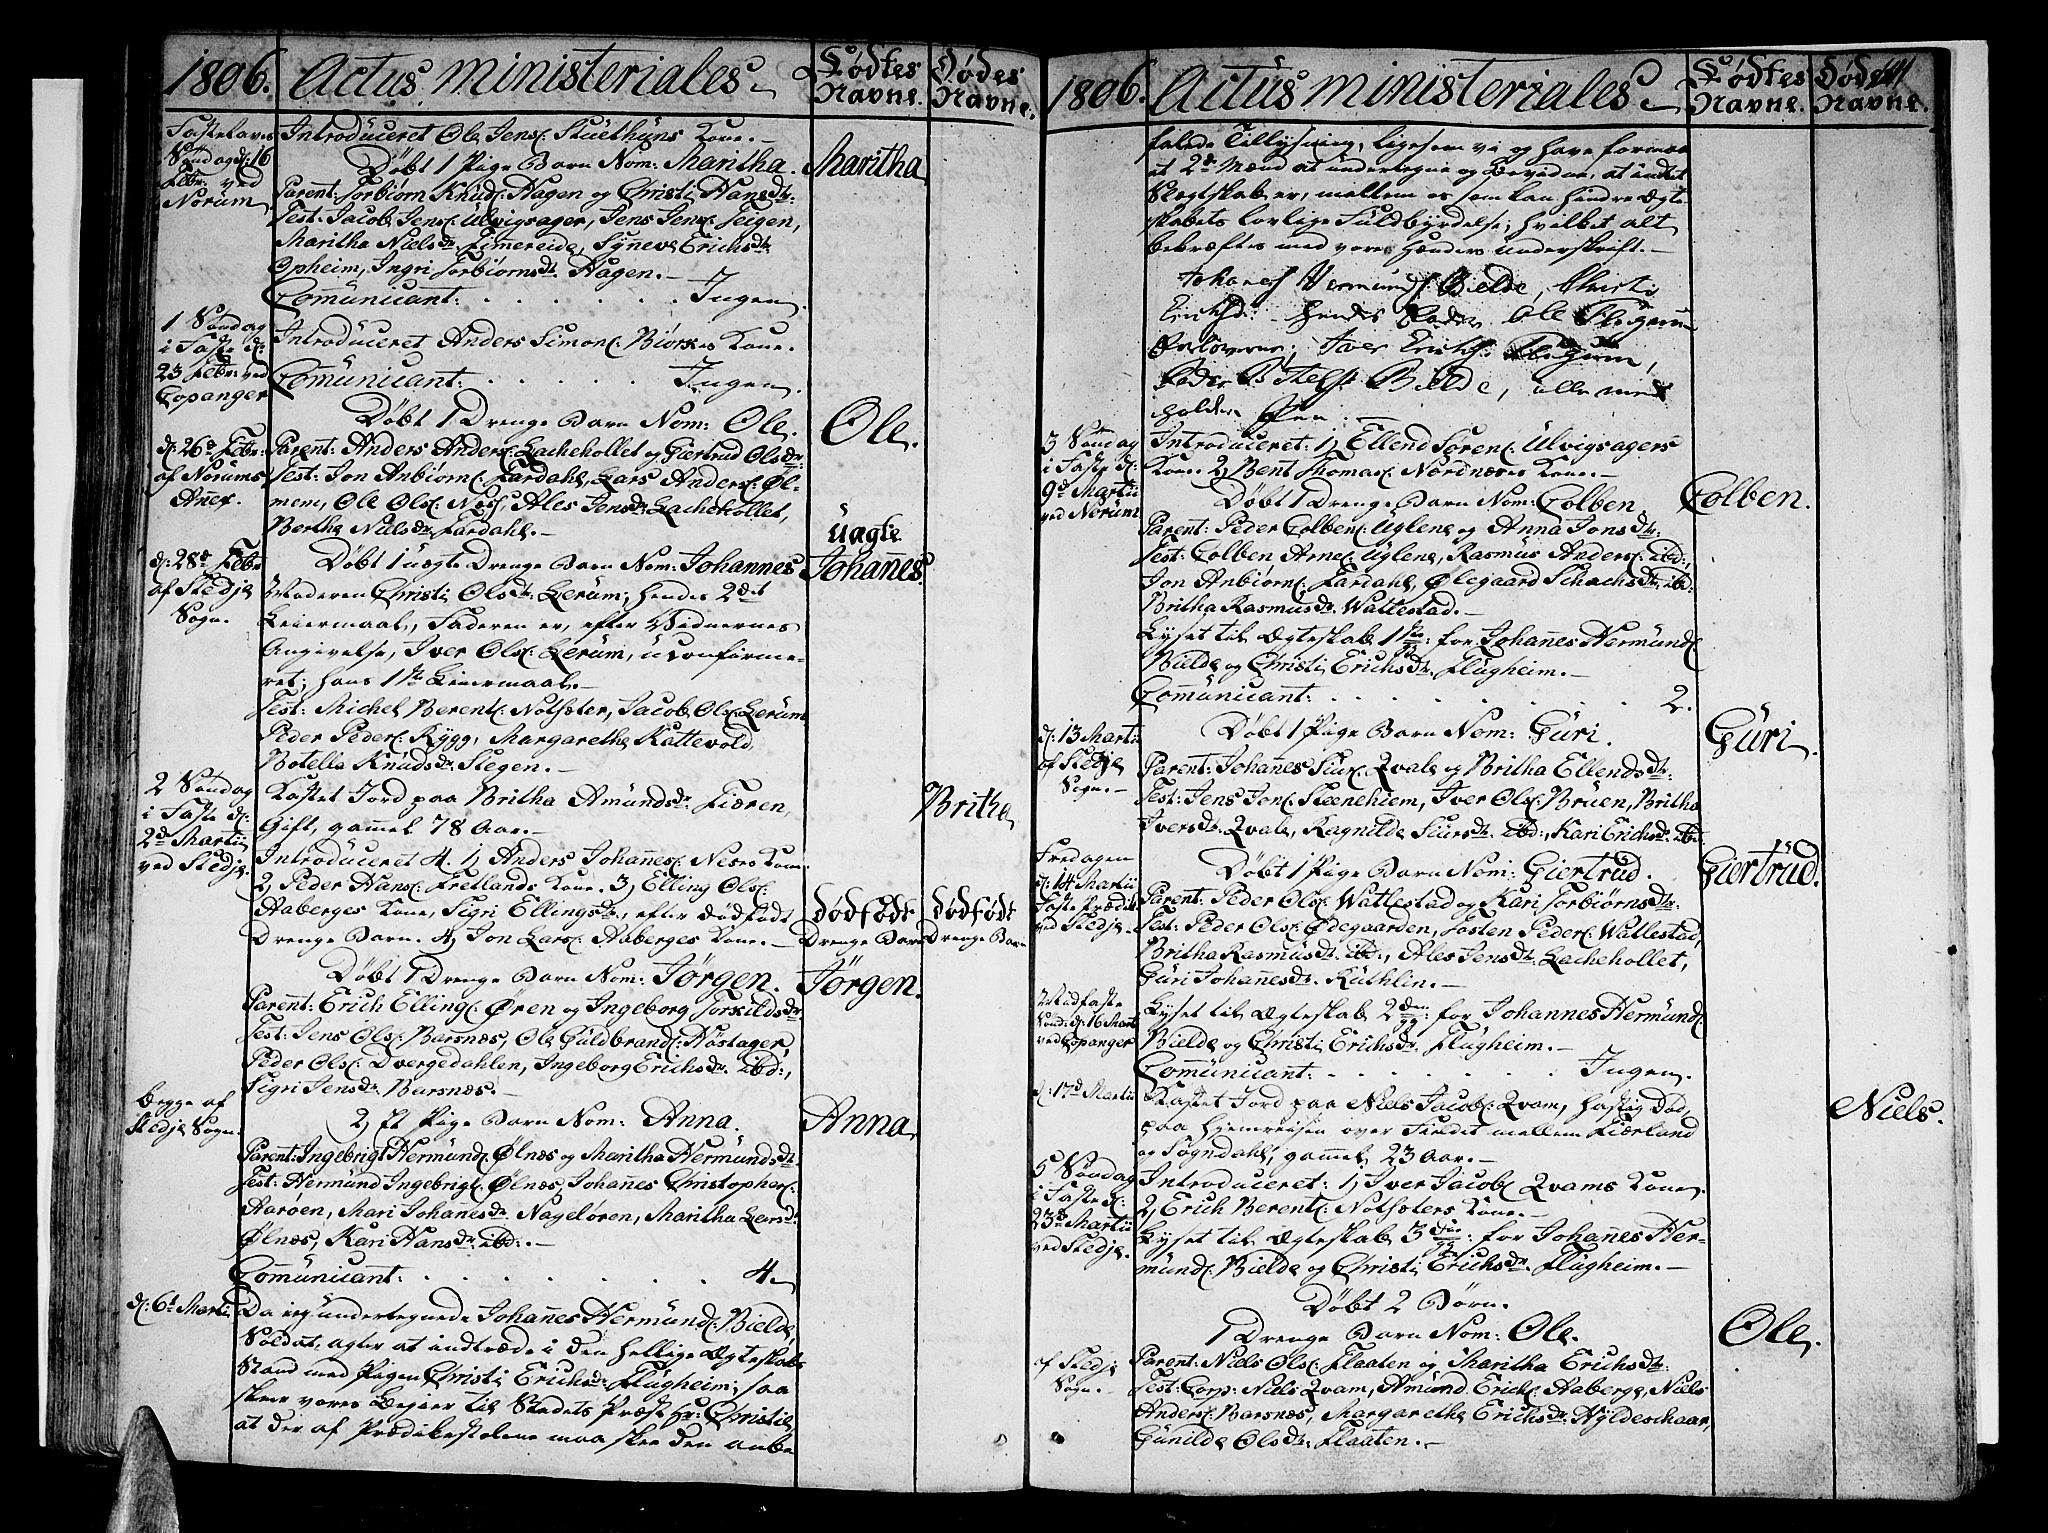 1806. Actus ministeriales Fødtes Navne. Dødes Navne.
Fastelavns Søndag d: 16 Febr: ved Norum
Introduceret Ole Jens: Stuethuns Kone.
Døbt 1 Pige Barn Nom: Maritha. Maritha
Parent: Torbiørn Knuds: Hagen og Christi Hansdtr:
Test: Jacob Jens: Ulvigsager, Jens Jens: Teigen,
Maritha Nielsdr. Eimereide, Syneve Erichsdtr
Opheim, Ingri Torbiørnsdtr Hagen.
Com̄unicant: . . . . . . Ingen.
1 Søndag i Faste d: 23 Febr: ved Copanger
Introduceret Anders Simons: Biørkes Kone.
Com̄unicant: . . . . . Ingen.
Døbt 1 Drenge Barn Nom: Ole. Ole.
d: 26d Febr: af Norums Anex.
Parent: Anders Anders: Lachehollet og Giertrud Olsdr:
Test: Jon Anbiørns: Fardahl, Lars Anders: Øl-
men, Ole Ols: Nes, Ales Jensdr: Lachehollet,
Berthe Nielsdr Fardahl.
d: 28d Febr af Stedje Sogn.
Døbt 1 uægte Drenge Barn Nom: Johannes uægte Johan̄es
Moderen Christi Olsdr. Lerum; hendes 2det
Leiermaal, Faderen er, efter Vidnernes
Angivelse, Iver Ols: Lerum, uconfirme-
ret; hans 1ste Leiermaal.
Test: Michel Berent: Notseter, Jacob Ols: Lerum
Peder Peders: Rygg, Margarethe Kattevold
Botella Knudsdr. Stegen.
2 Søndag i Faste d: 2d Martii ved Stedje.
Kastet Jord paa Britha Amundsdr. Fiæren, Britha
Gift, gammel 78 Aar.
Introduceret 4. 1, Anders Johan̄es: Neses Kone
2, Peder Hans: Fretlands Kone. 3, Elling Ols:
Aaberges Kone, Sigri Ellingsdr., efter dødfødt dødfødt dødfødt
Drenge Barn. 4, Jon Lars: Aaberges Kone. Drenge Barn Drenge Barn
Døbt 1 Drenge Barn Nom: Jørgen. Jørgen.
Parent: Erich Elling: Øren og Ingeborg Torkildsdr
Test: Jens Ols: Barsnæs, Ole Guldbrand: Høstager,
Peder Ols: Dvergedahlen, Ingeborg Erichsdr. ibd:,
Sigri Jensdr. Barsnæs.
Begge af Stedje Sogn.
2, Et Pige Barn Nom: Anna. Anna
Parent: Ingebrigt Hermund: Ølnæs og Maritha Hermundsdtr
Test: Hermund Ingebrigt: Ølnæs, Johan̄es Christopher:
Aarøen, Mari Johan̄esdr. Nageløren, Maritha Larsdr
Ølnæs, Kari Hansdr. ibd:.
Com̄unicant: . . . . . . . 4.
d: 6d Martii
Da ieg undertegnede Johan̄es Hermund: Bielde,
Soldat, agter at indtræde i den hellige Ægteskabs
Stand med Pigen Christi Erichsdr Flugheim; saa
skeer vores Begier til Stedets Præst Hr: Christie,
at der af Prædikestolene maa skee den anbe-
1806. Actus ministeriales Fødtes Navne. Dødes Navne.
falede Tillysning, ligesom vi og have formaaet
2de Mænd at undertegne og bevidne, at intet
Slegtskab er, mellem os som kan hindre Ægte
skabets lovlige Fuldbyrdelse; hvilket alt
bekræftes med vores Hænders underskrift.
Johanes Hermunds: Bielde, Christi
Erichsd: hendes Fader Ole Flugeim
Forlovere; Iver Erichs: Flugeim,
Peder Botels: Bielde, alle med
holden Pen.
3 Søndag i Faste d: 9d Martii ved Norum
Introduceret: 1, Ellend Søren: Ulvigsagers
Kone. 2, Bent Thomas: Nordnæses Kone.
Døbt 1 Drenge Barn Nom: Colben. Colben.
Parent: Peder Colben: Uglene og Anna Jonsdtr.
Test: Colben Arne: Uglene, Rasmus Anders: ibd:,
Jon Anbiørn: Fardahl, Ølegaard Schachsdtr ibd:
Britha Rasmusdr. Wattestad.
Lyset til Ægteskab 1ste gg: for Johan̄es Hermund:
Bielde og Christi Erichsdr. Flugheim.
Com̄unicant: . . . . . . . 2.
d: 13 Martii af Stedje Sogn.
Døbt 1 Pige Barn Nom: Guri. Guri.
Parent: Johan̄es Siur: Qvale og Britha Ellendsdtr:
Test: Jens Jon: Steenehiem, Iver Ols: Bruen, Britha
Iversdr. Qvale, Ragnilde Siursdr. ibd:, Kari Erichsdr. ibd
Fredagen d: 14 Martii Faste Prædik: ved Stedje.
Døbt 1 Pige Barn Nom: Giertrud. Giertrud.
Parent: Peder Ols: Wattestad og Kari Torbiørnsdtr:
Test: Peder Ols: Ødegaarden, Tosten Peder: Wattestad,
Britha Rasmusdr. ibd:, Ales Jensdr. Lachehollet,
Guri Johan̄esdr. Kuthlin.
Midfaste Sønd: d: 16 Mart ved Copanger
Lyset til Ægteskab 2den gg: for Johannes Hermund:
Bielde og Christi Erichsdr. Flugheim.
Com̄unicant: . . . . . . Ingen.
d: 17d Martii
Kastet Jord paa Niels Jacob: Qvam, hastig død, Niels.
paa hjemreisen over Fieldet mellem Fiærland
og Sogndahl, gammel 23 Aar.
5 Søndag i Faste d: 23de Martii ved Stedje.
Introduceret: 1, Iver Jacob: Qvams Kone.
2, Erich Berent: Notseters Kone.
Lyset til Ægteskab 3die gg: for Johan̄es Her-
mund: Bielde og Christi Erichsdr. Flugheim.
Døbt 2 Børn.
1 Drenge Barn Nom: Ole. Ole.
af Stedje Sogn.
Parent: Niels Ols: Flaaten og Maritha Erichsdtr:
Test: Corp: Niels Qvam, Amund Erich: Aaberge, Niels
Anders: Barsnæs, Margarethe Erichsdr. Hyldeschaar,
Gunilde Olsdtr. Flaaten.